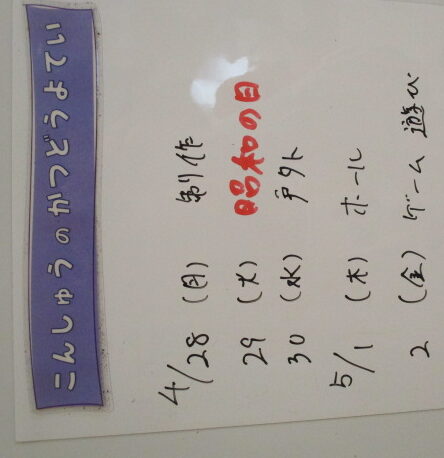 こんしゅうのかつどうよてい
4/28 (月) 制作
29 (火) 昭和の日
30 (水) 戸外
5/1 (木) ホール
2 (金) ゲーム遊び